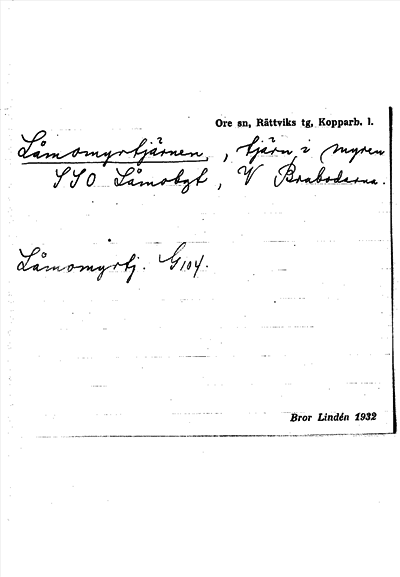 Ore sn, Rättviks tg, Kopparb. l.
Låmomyrtjärnen, tjärn i myren
SSO Låmobgt, V Brabodarna.
Låmomyrtj. G104.
Bror Lindén 1932